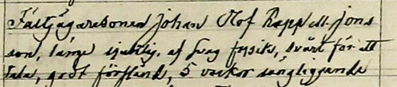 Fältjägaresonen Johan Olof Rapp ell. Jons
son, länge sjuklig, af svag fysik, svårt för att
tala, godt förstånd, 5 veckor sängliggande